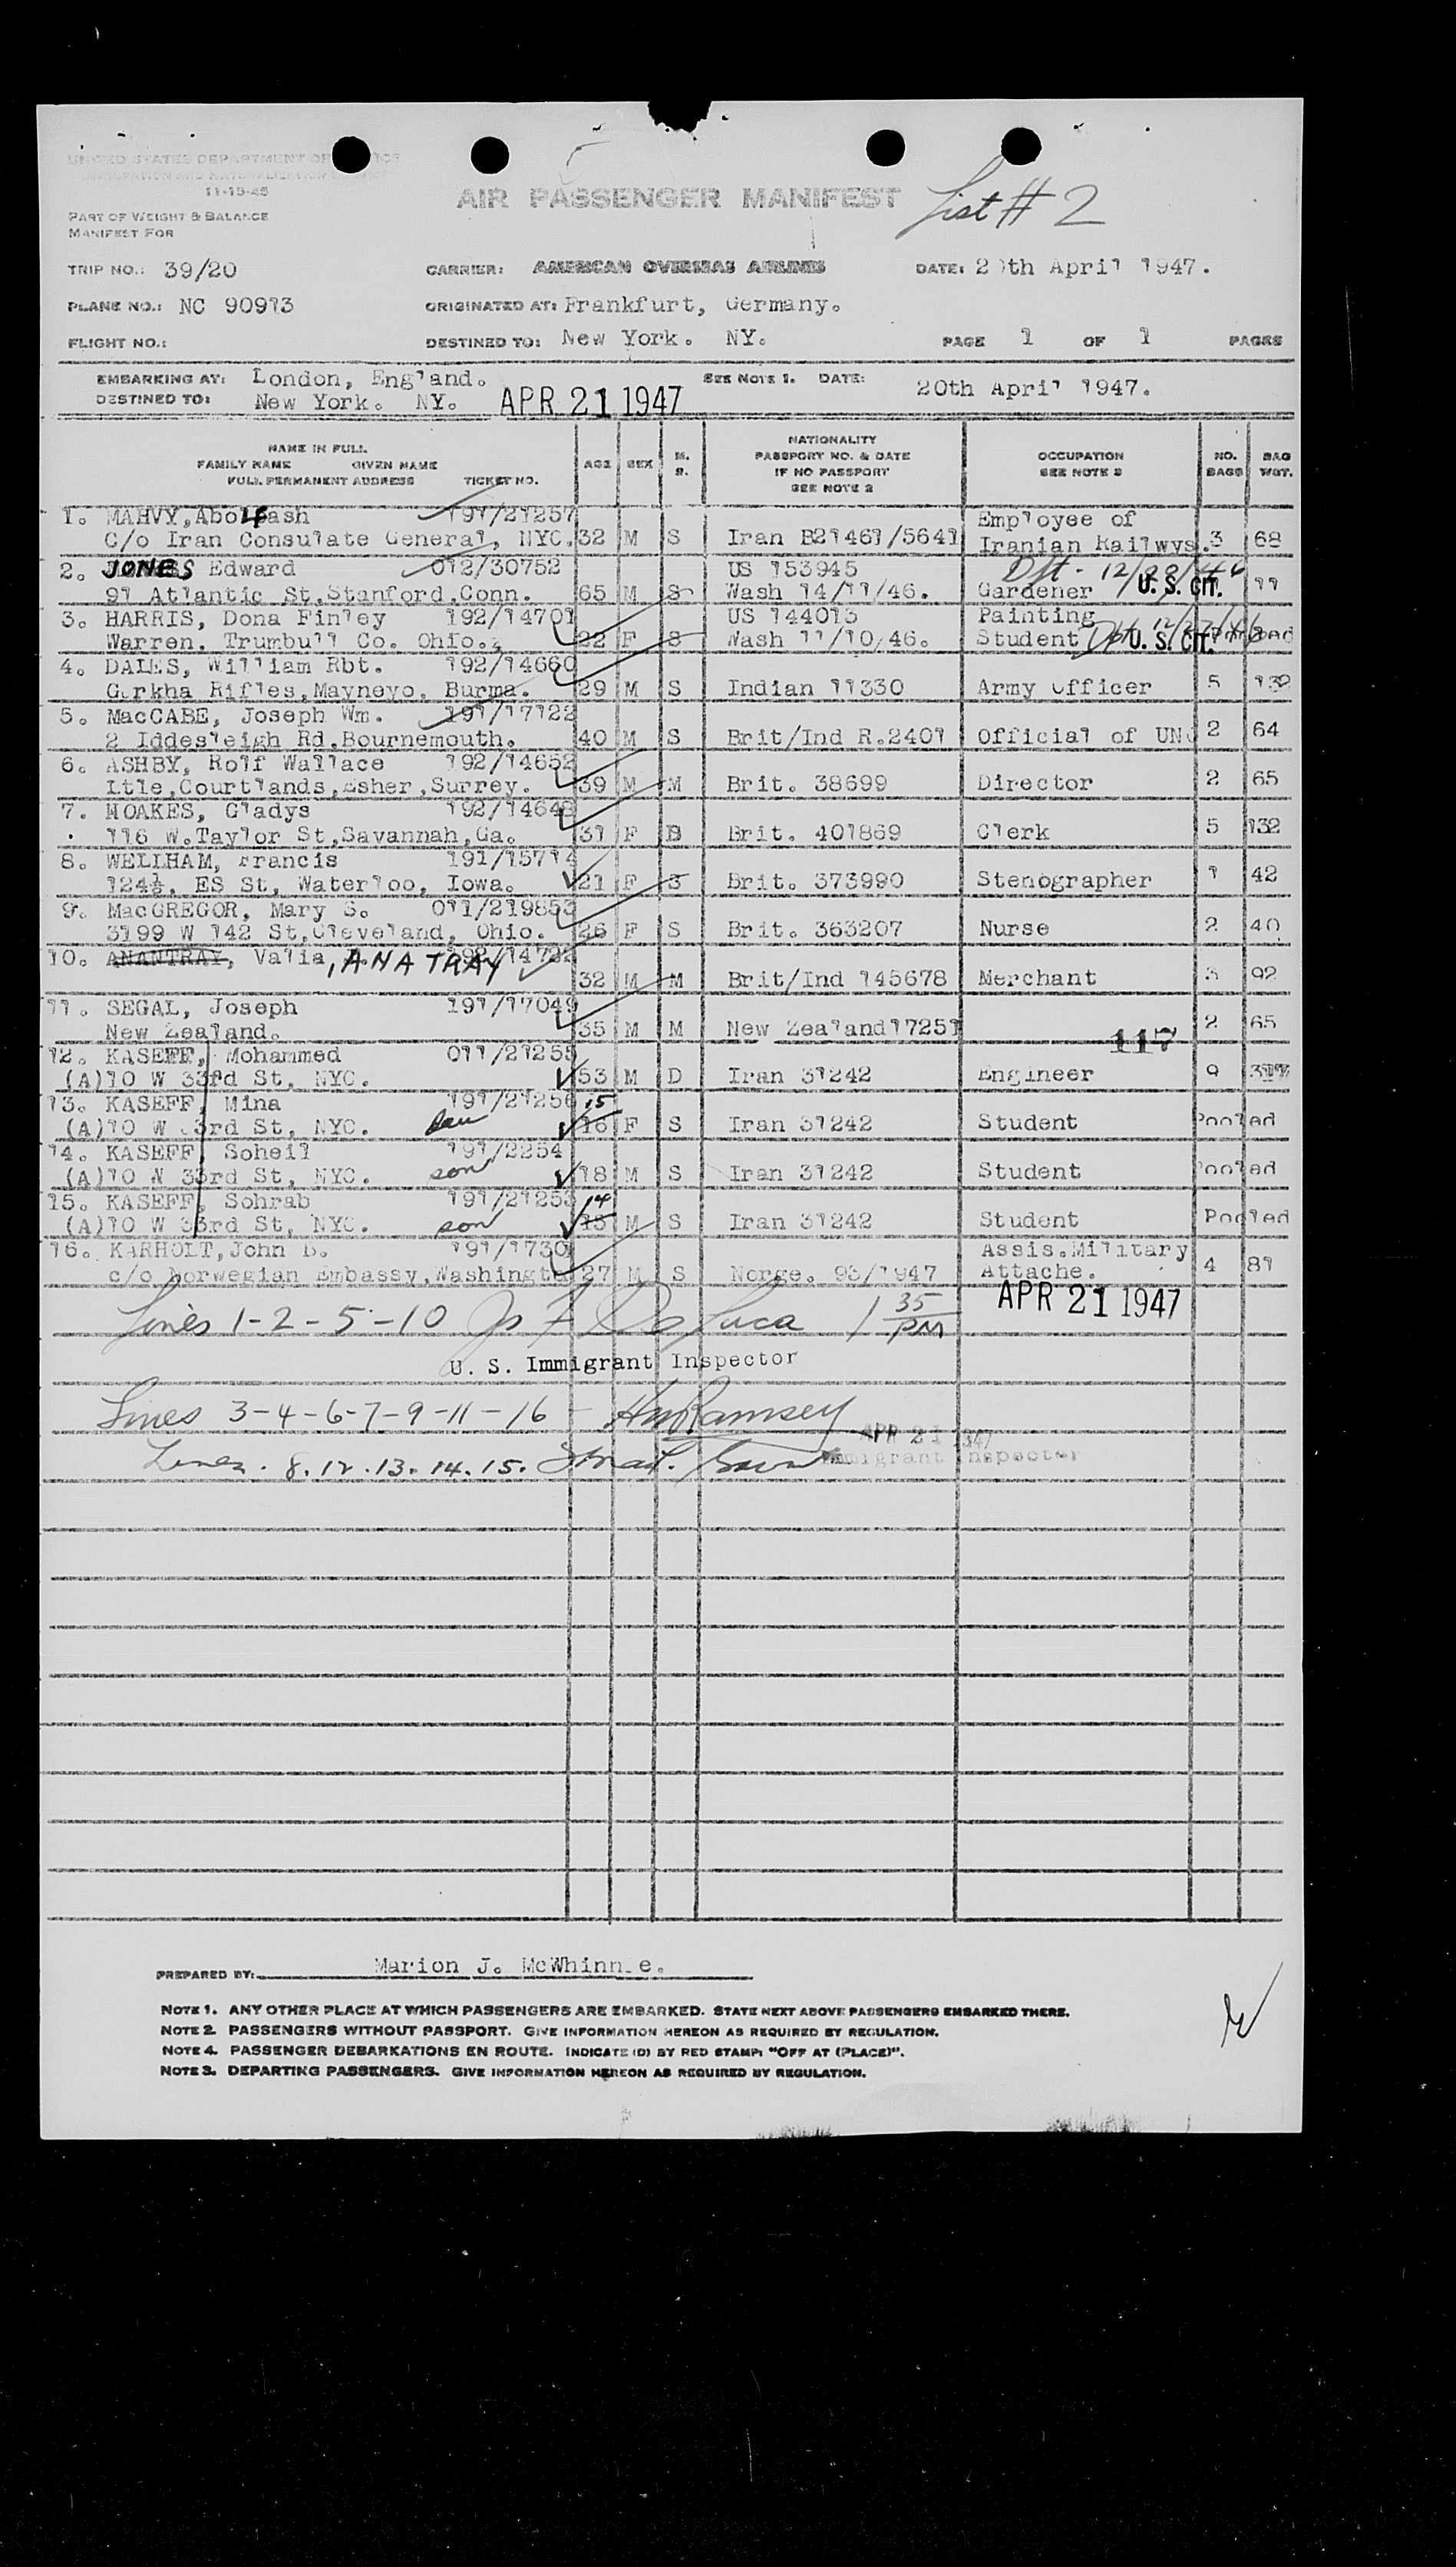 UNITED STATES DEPARTMENT OF
11-15-45
AIR PASSENGER MANIFEST List # 2
PART OF WEIGHT & BALANCE
MANIFEST FOR
TRIP NO.: 39/20 CARRIER: AMERICAN OVERSEAS AIRLINES DATE: 20th April 1947.
PLANE NO.: NC 90913 ORIGINATED AT: Frankfurt, Germany.
FLIGHT NO.: DESTINED TO: New York. NY. PAGE 1 OF 1 PAGES
EMBARKING AT: London, England. SEE NOTE 1. DATE: 20th April 1947.
DESTINED TO: New York. NY. APR 21 1947
NAME IN FULL
FAMILY NAME GIVEN NAME
FULL PERMANENT ADDRESS TICKET NO. AGE SEX M. S. NATIONALITY PASSPORT NO. & DATE IF NO PASSPORT SEE NOTE 2 OCCUPATION SEE NOTE 3 NO. BAGS BAG WGT.
1. MAHVY, Abolfash 191/21257 Employee of
C/o Iran Consulate General, NYC. 32 M S Iran B21461/5641 Iranian Railwys. 3 68
2. JONES Edward 012/30752 US 153945 Dft. 12/
91 Atlantic St, Stanford, Conn. 65 M S Wash 14/11/46. Gardener U. S. CIT. 11
3. HARRIS, Dona Finley 192/14701 US 144013 Painting
Warren. Trumbull Co. Ohio. 22 F S Wash 11/10/46. Student U. S. CIT.
4. DALES, William Rbt. 192/14660
Gurkha Rifles, Mayneyo, Burma. 29 M S Indian 11330 Army Officer 5 132
5. MacCABE, Joseph Wm. 191/17122
2 Iddesleigh Rd, Bournemouth. 40 M S Brit/Ind R.2401 Official of UNO 2 64
6. ASHBY, Rolf Wallace 192/14652
Ltle, Courtlands, Esher, Surrey. 39 M M Brit. 38699 Director 2 65
7. NOAKES, Gladys 192/14648
116 W. Taylor St, Savannah, Ga. 31 F D Brit. 401869 Clerk 5 132
8. WELLHAM, Francis 191/15714
124½, ES St, Waterloo, Iowa. 21 F S Brit. 373990 Stenographer 1 42
9. MacGREGOR, Mary S. 011/219853
3199 W 142 St, Cleveland, Ohio. 26 F S Brit. 363207 Nurse 2 40
10. ANANTRAY, Valia, ANATRAY
32 M M Brit/Ind 145678 Merchant 3 92
11. SEGAL, Joseph 191/17049
New Zealand. 35 M M New Zealand 17251 2 65
117
12. KASEFF, Mohammed 011/21255
(A) 10 W 33rd St, NYC. 53 M D Iran 31242 Engineer 9
13. KASEFF, Mina 191/21256 15
(A) 10 W 33rd St, NYC. dau 16 F S Iran 31242 Student Pooled
14. KASEFF, Soheil 191/2254
(A) 10 W 33rd St, NYC. son 18 M S Iran 31242 Student Pooled
15. KASEFF, Sohrab 191/21253 14
(A) 10 W 33rd St, NYC. son 15 M S Iran 31242 Student Pooled
16. KARHOLT, John B. 191/1730 Assis. Military
c/o Norwegian Embassy, Washingto 27 M S Norge. 93/1947 Attache. 4 81
APR 21 1947
Lines 1-2-5-10 Jo F De Luca 1 35 PM
U. S. Immigrant Inspector
Lines 3-4-6-7-9-11-16 - HW Ramsey
APR 21 1947
Lines. 8.12.13.14.15.
Immigrant Inspector
PREPARED BY: Marion J. McWhinnie.
NOTE 1. ANY OTHER PLACE AT WHICH PASSENGERS ARE EMBARKED. STATE NEXT ABOVE PASSENGERS EMBARKED THERE.
NOTE 2. PASSENGERS WITHOUT PASSPORT. GIVE INFORMATION HEREON AS REQUIRED BY REGULATION.
NOTE 4. PASSENGER DEBARKATIONS EN ROUTE. INDICATE (D) BY RED STAMP: "OFF AT (PLACE)".
NOTE 3. DEPARTING PASSENGERS. GIVE INFORMATION HEREON AS REQUIRED BY REGULATION.